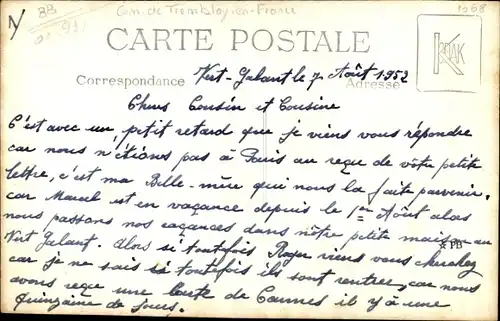 BB
Com. de Tremblay-en-France
1968
CARTE POSTALE
KODAK
Correspondance
Adresse
Vert-Galant le 7 Août 1952
Chers Cousin et Cousine
C'est avec un petit retard que je viens vous répondre
car nous n'étions pas à Paris au reçu de vôtre petite
lettre, c'est ma Belle-mère qui nous la faite parvenir.
car Marcel est en vacance depuis le 1er Août alas
nous passons nos vaçances dans nôtre petite maison au
Vert Galant. Alors si toutefois Roger viens vous cherchez
car je ne sais si toutefois ils sont rentrer, car nous
avons reçue une carte de Cannes il y à une
Quinzaine de jours.